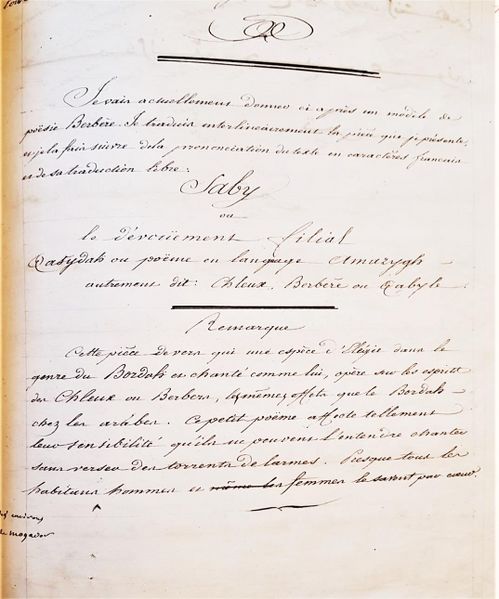 Je vais actuellement donner ci après un modèle de
poësie Berbère. Je traduis interlinéairement la pièce que je présente,
et je la fais suivre de la prononciation du texte en caractères français
et de sa traduction libre.
Saby
ou
le dévoüement filial
Qasydah ou poëme en langage Amazygh
autrement dit: Chleux, Berbère ou Qabyle.
Remarque
Cette pièce de vers qui une espèce d'Elégie dans le
genre du Bordah et chanté comme lui, opère sur les esprits
des Chleux ou Berbers, les mêmes effets que le Bordah
chez les arabes. Ce petit poëme affecte tellement
leur sensibilité qu'ils ne peuvent l'entendre chanter
sans verser des torrents de larmes. Presque tous les
habitans hommes et même les femmes le savent par cœur.
environs
de mogador